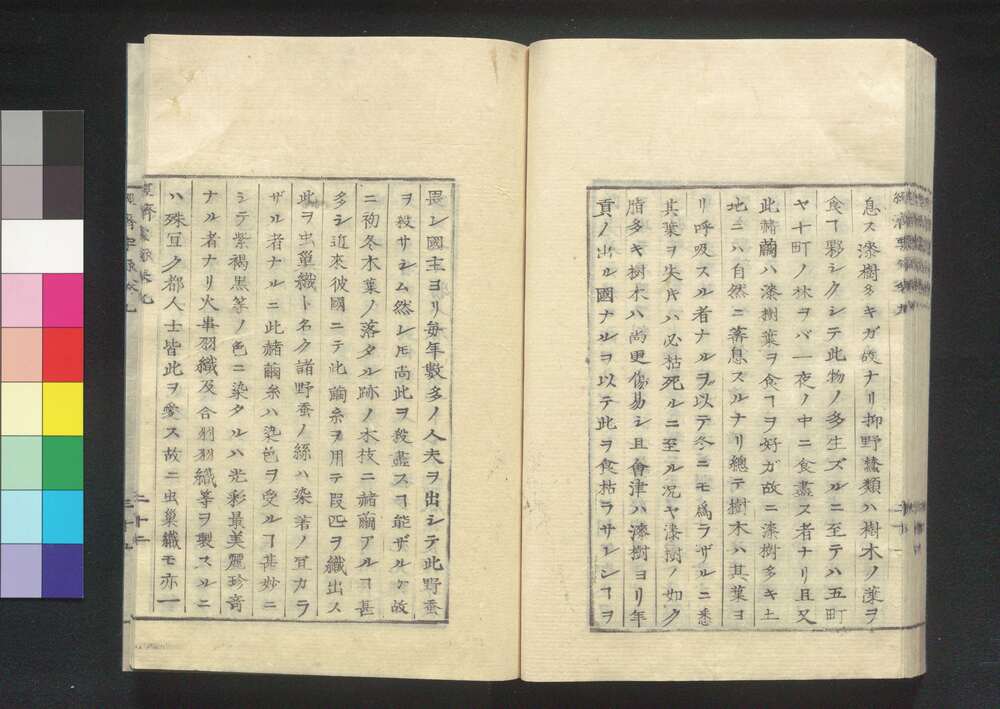 息ス漆樹多キガ故ナリ抑野蠶類ハ樹木ノ葉ヲ
食ヿ夥シクシテ此物ノ多生ズルニ至テハ五町
ヤ十町ノ林ヲバ一夜ノ中ニ食盡ス者ナリ且又
此赭繭ハ漆樹葉ヲ食ヿヲ好ガ故ニ漆樹多キ土
地ニハ自然ニ蕃息スルナリ總テ樹木ハ其葉ヨ
リ呼吸スル者ナルヲ以テ冬ニモ爲ラザルニ悉
其葉ヲ失ﾄｷハ必枯死ルニ至ル况ヤ漆樹ノ如ク
脂多キ樹木ハ尚更傷易シ且會津ハ漆樹ヨリ年
貢ノ出ル國ナルヲ以テ此ヲ食枯ラサレンヿヲ
畏レ國主ヨリ毎年數多ノ人夫ヲ出シテ此野蚕
ヲ殺サシム然レ𪜈尚此ヲ殺盡スヿ能ザルガ故
ニ初冬木葉ノ落タル跡ノ木枝ニ赭繭アルヿ甚
多シ近來彼國ニテ此繭糸ヲ用テ段匹ヲ織出ス
此ヲ虫巢織ト名ク諸野蚕ノ絲ハ染著ノ宜カラ
ザル者ナルニ此赭繭糸ハ染色ヲ受ルヿ甚妙ニ
シテ紫褐黒等ノ色ニ染タルハ光彩最美麗珍奇
ナル者ナリ火事羽織及合羽羽織等ヲ製スルニ
ハ殊宜ク都人士皆此ヲ愛ス故ニ虫巢織モ亦一